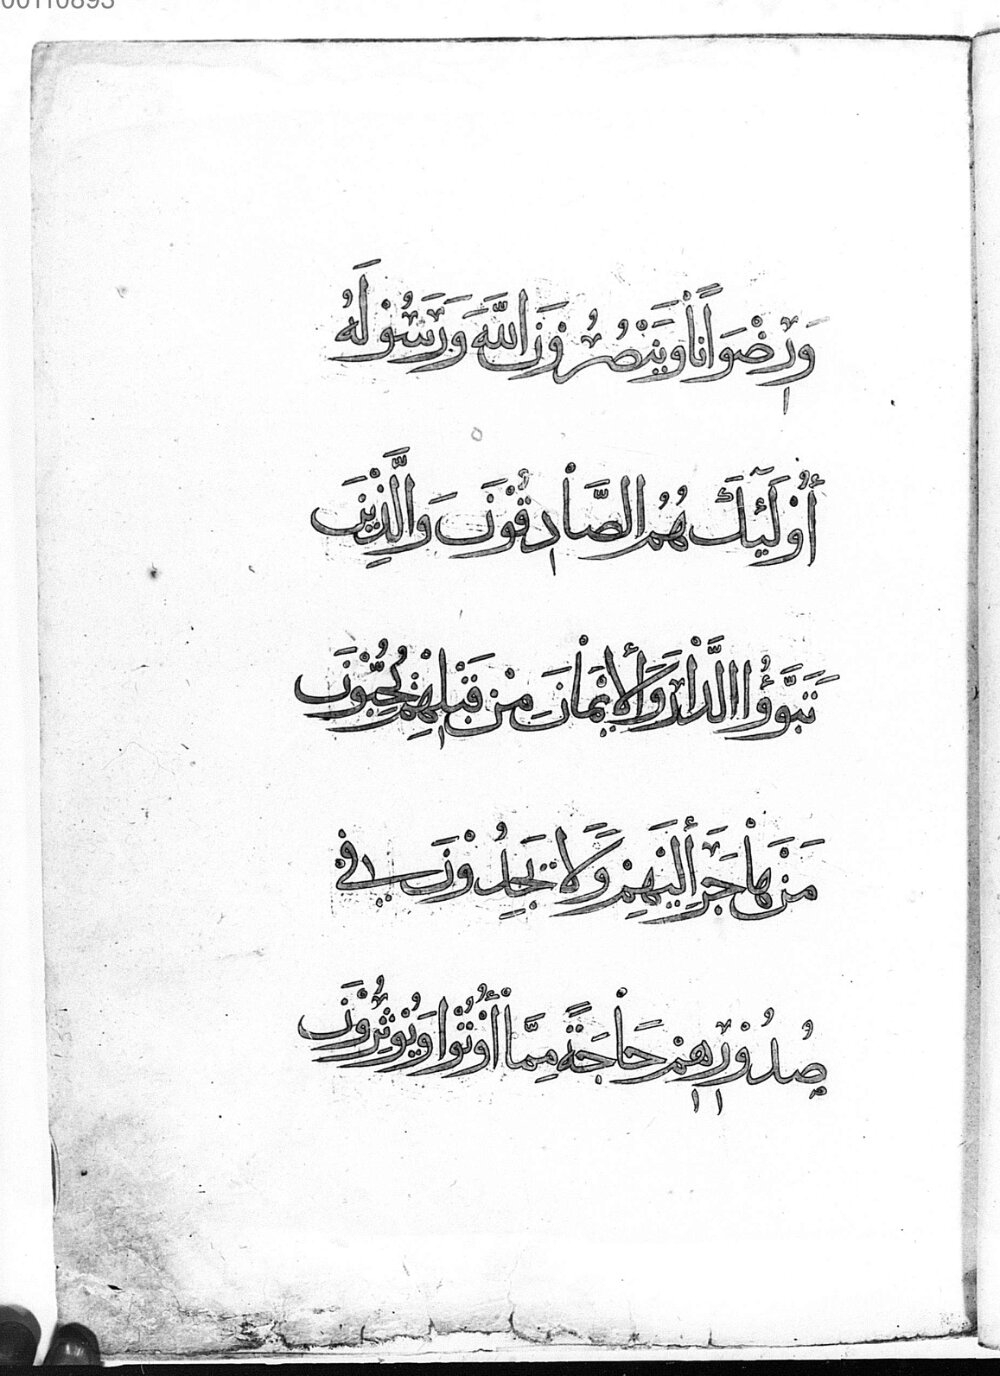 00110893
وَرِضْوَانًا وَيَنْصُرُونَ اللَّهَ وَرَسُولَهُ
أُوْلَئِكَ هُمُ الصَّادِقُوْنَ وَالَّذِيْنَ
تَبَوَّؤُا الدَّارَ وَالْأِيْمَانَ مِنْ قَبْلِهِمْ يُحِبُّوْنَ
مَنْ هَاجَرَ أِلَيْهِمْ وَلَا يَجِدُوْنَ فِي
صُدُوْرِهِمْ حَاجَةً مِمَّا أُوْتُوْا وَيُوْثِرُوْنَ